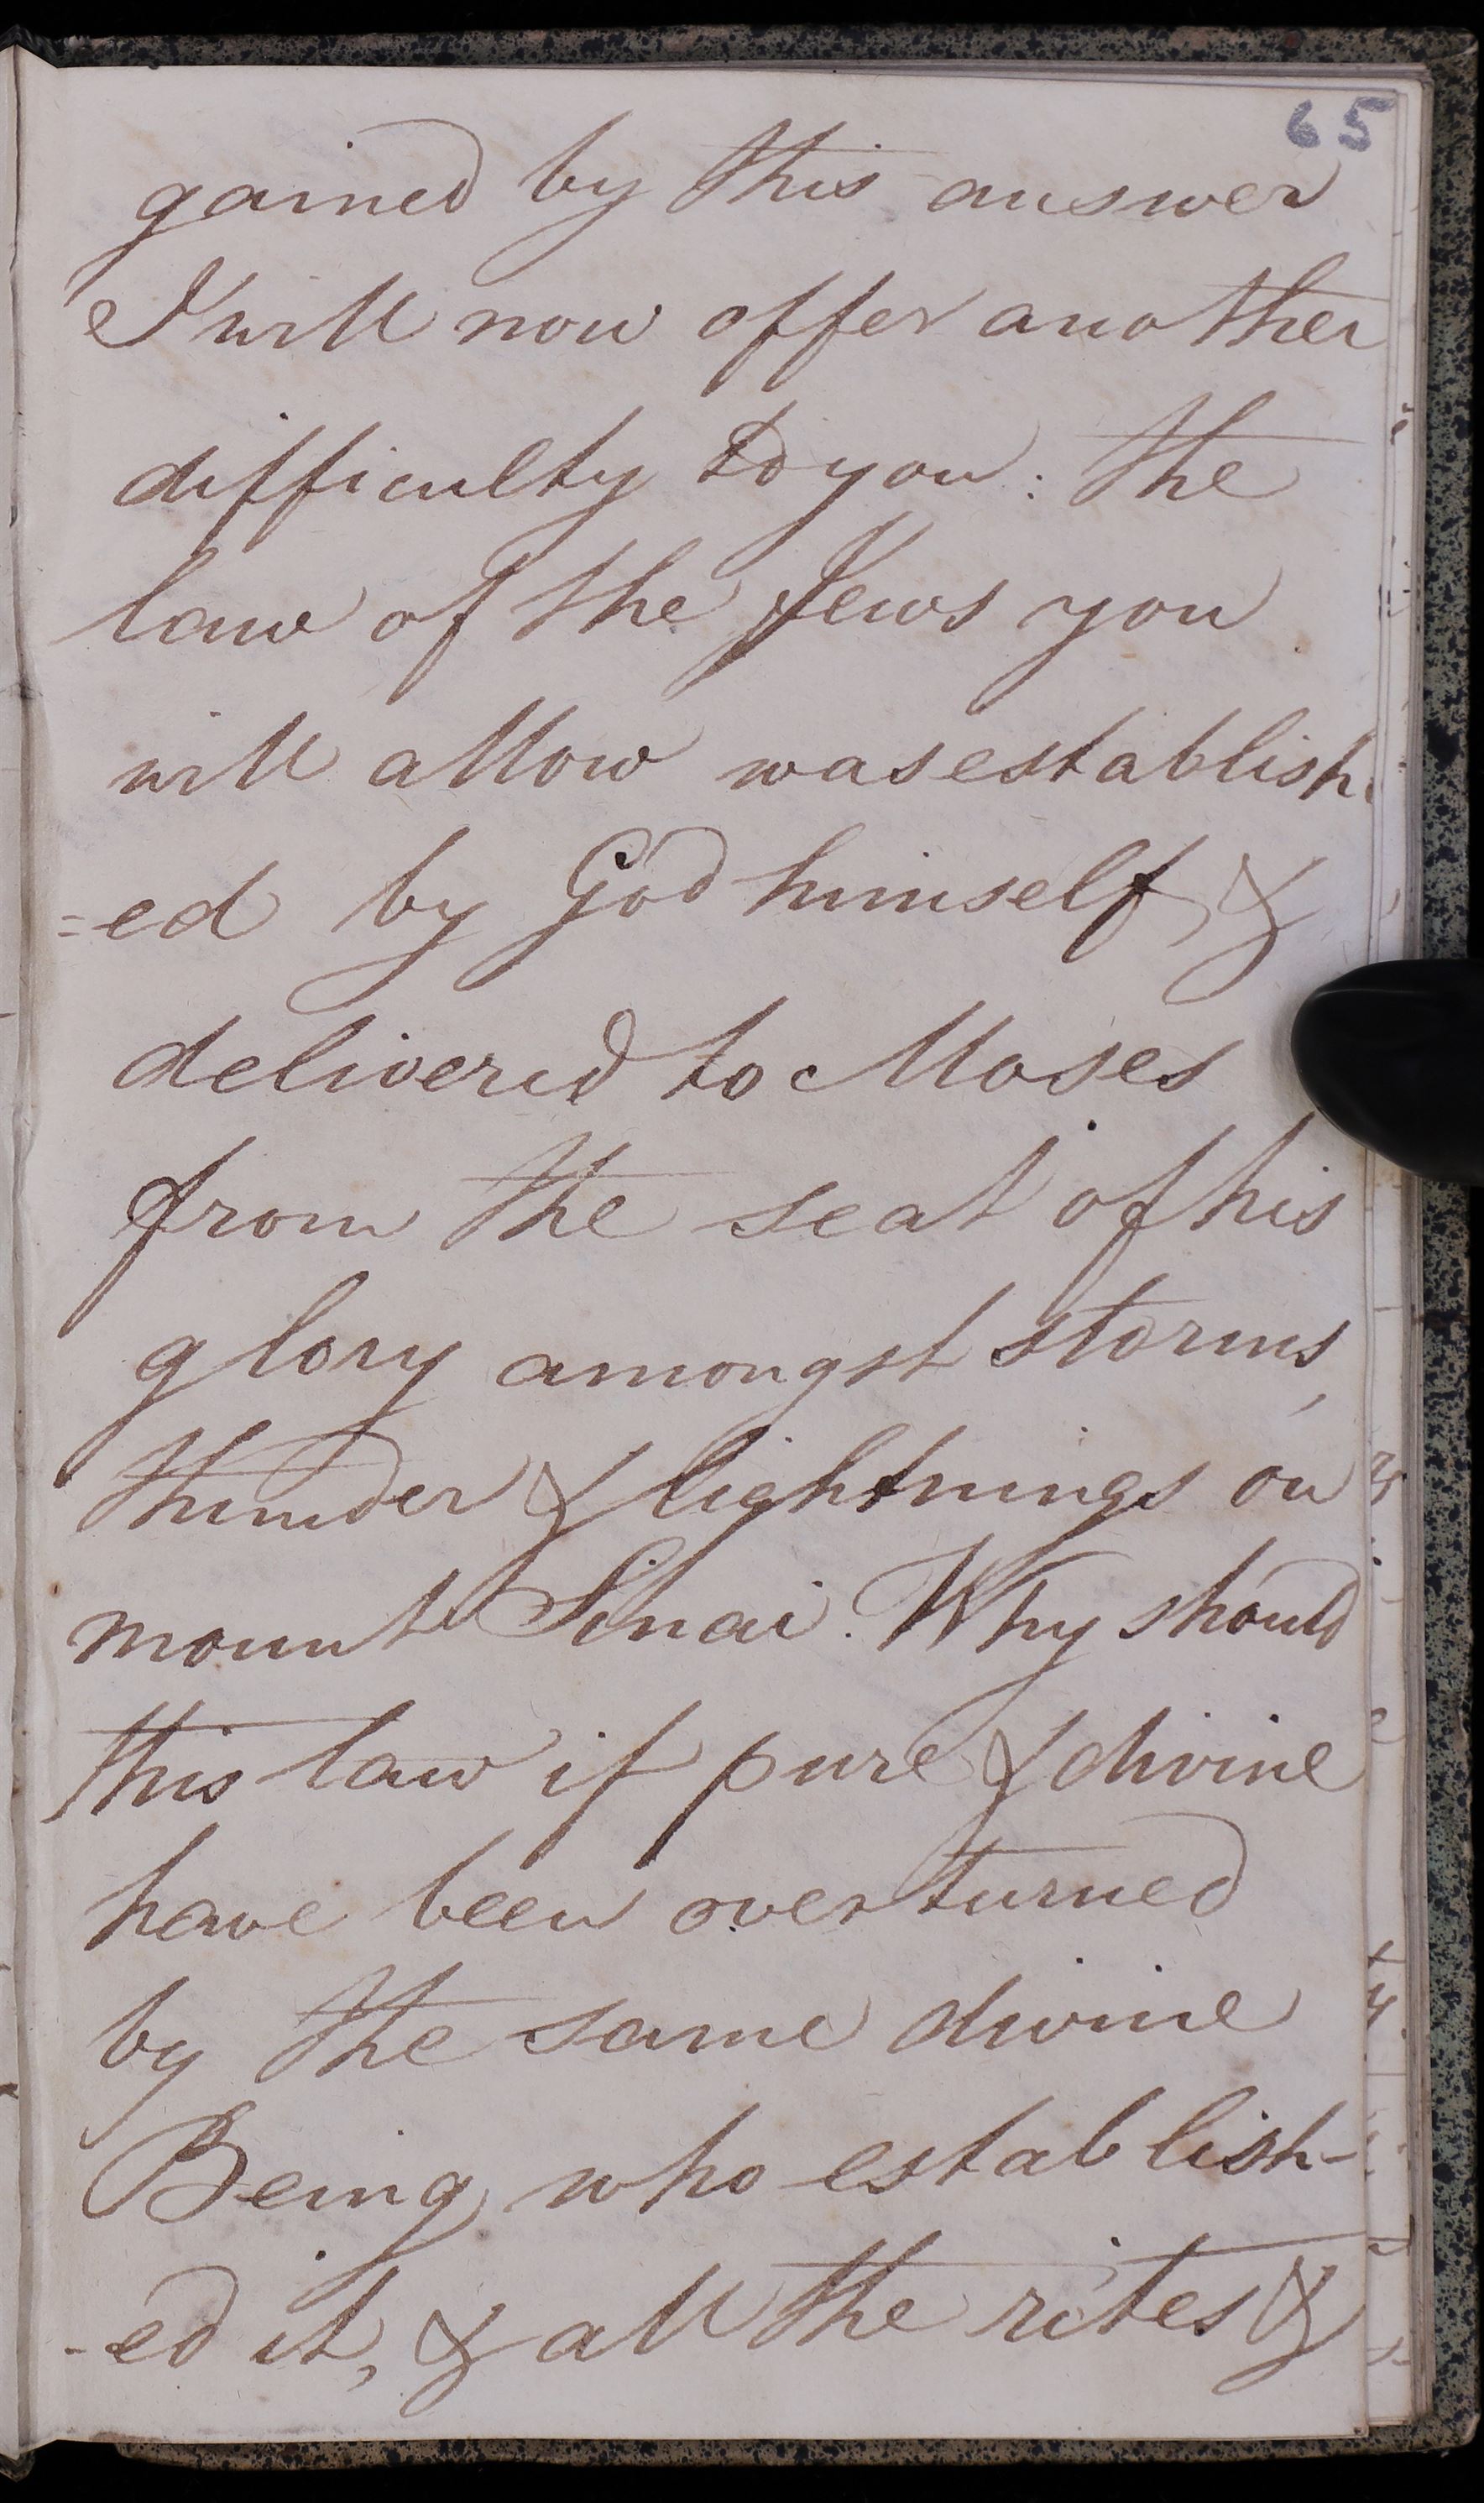 65
gained by this answer
I will now offer another
difficulty to you: the
law of the Jews you
will allow was establish
=ed by God himself, &
delivered to Moses
from the seat of his
glory amongst storms,
thunder & lightnings on
mount Sinai. Why should
this law if pure & divine
have been overturned
by the same divine
Being who establish-
-ed it, & all the rites &